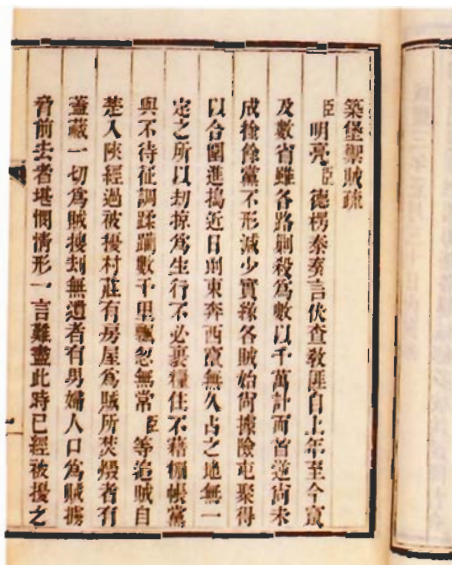 築堡禦賊疏
臣明亮臣德楞泰奏言伏查教匪自上年至今竄
及數省雖各路剿殺為數以千萬計而首逆尚未
成擒餘黨不形減少實緣各賊始尚據險屯聚得
以合圍進搗近日則東奔西竄無久占之地無一
定之所以刼掠為生行不必裹糧住不藉棚帳黨
與不待征調蹂躪數千里飄忽無常臣等追賊自
楚入陝經過被擾村莊有房屋為賊所焚燬者有
蓋藏一切為賊搜刼無遺者有男婦人口為賊擄
脅前去者堪憫情形一言難盡此時已經被擾之